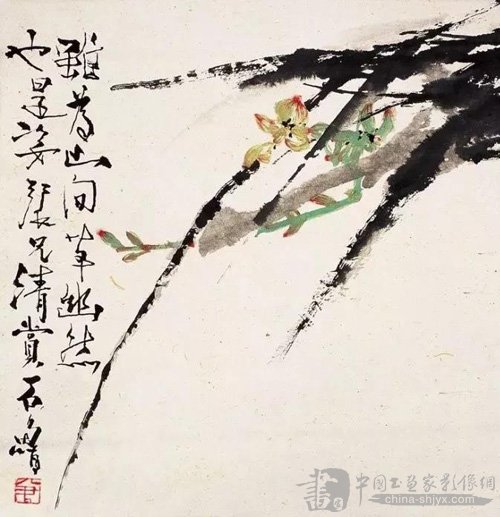 雖為山间草幽然
也是姿張兄清賞 石
書
中國书画家影像網
china-shjyx.com